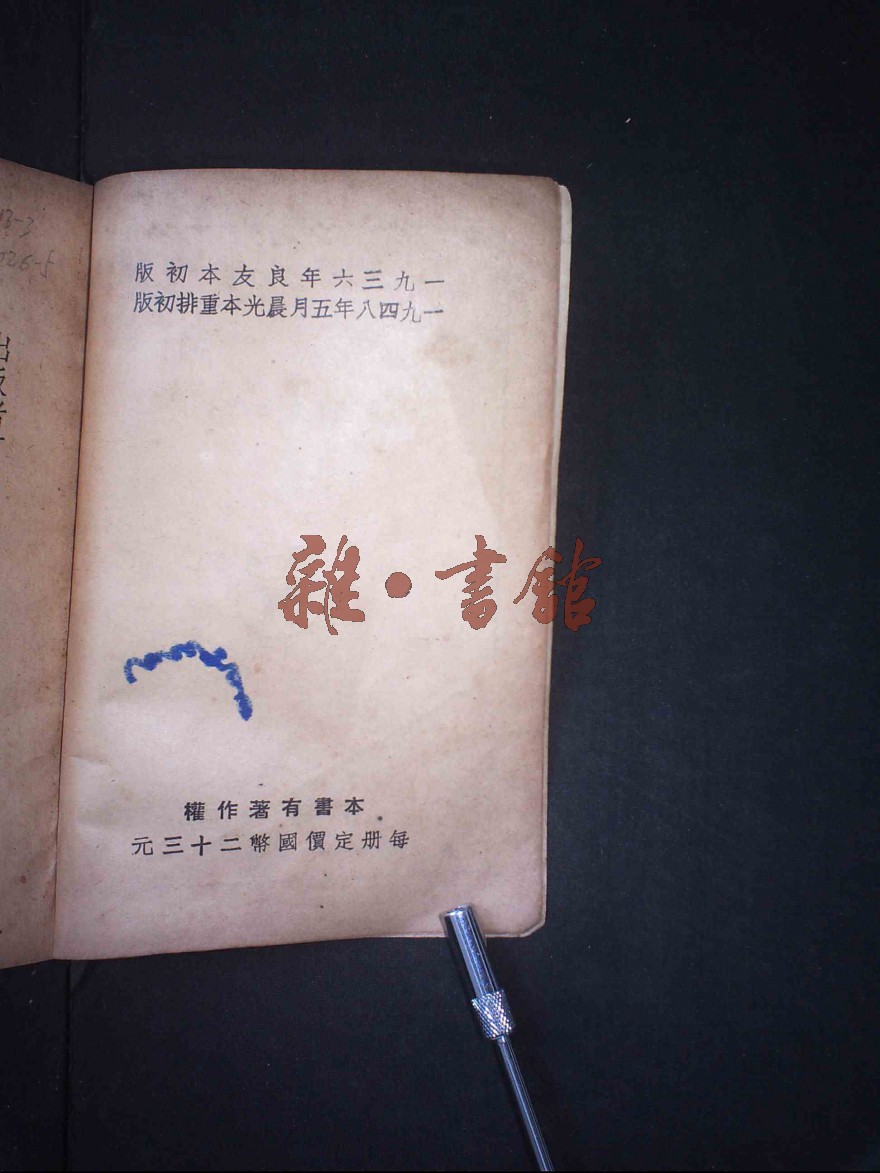 一九三六年良友本初版
一九四八年五月晨光本重排初版
雜·書館
本書有著作權
每册定價國幣二十三元